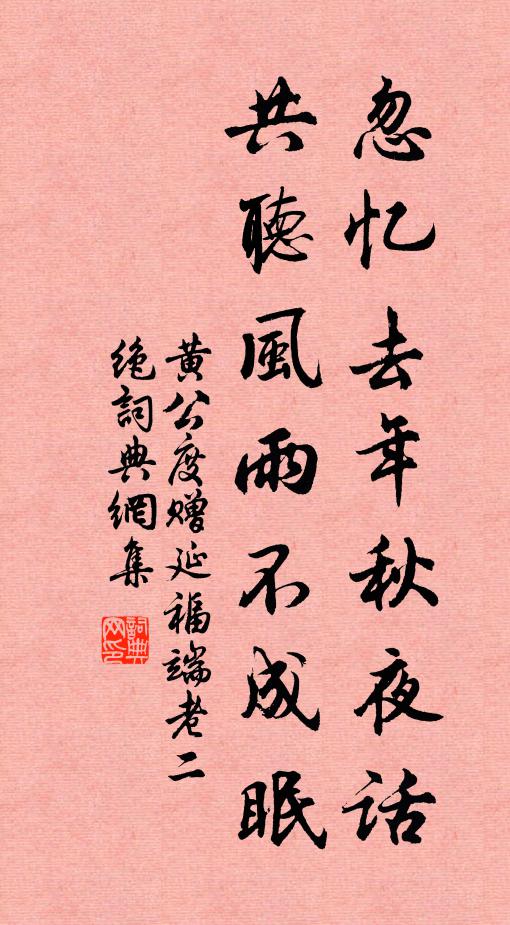 忽忆去年秋夜话
共聽風雨不成眠
黄公度赠延福端老二
绝詞典網集
詞典
网印